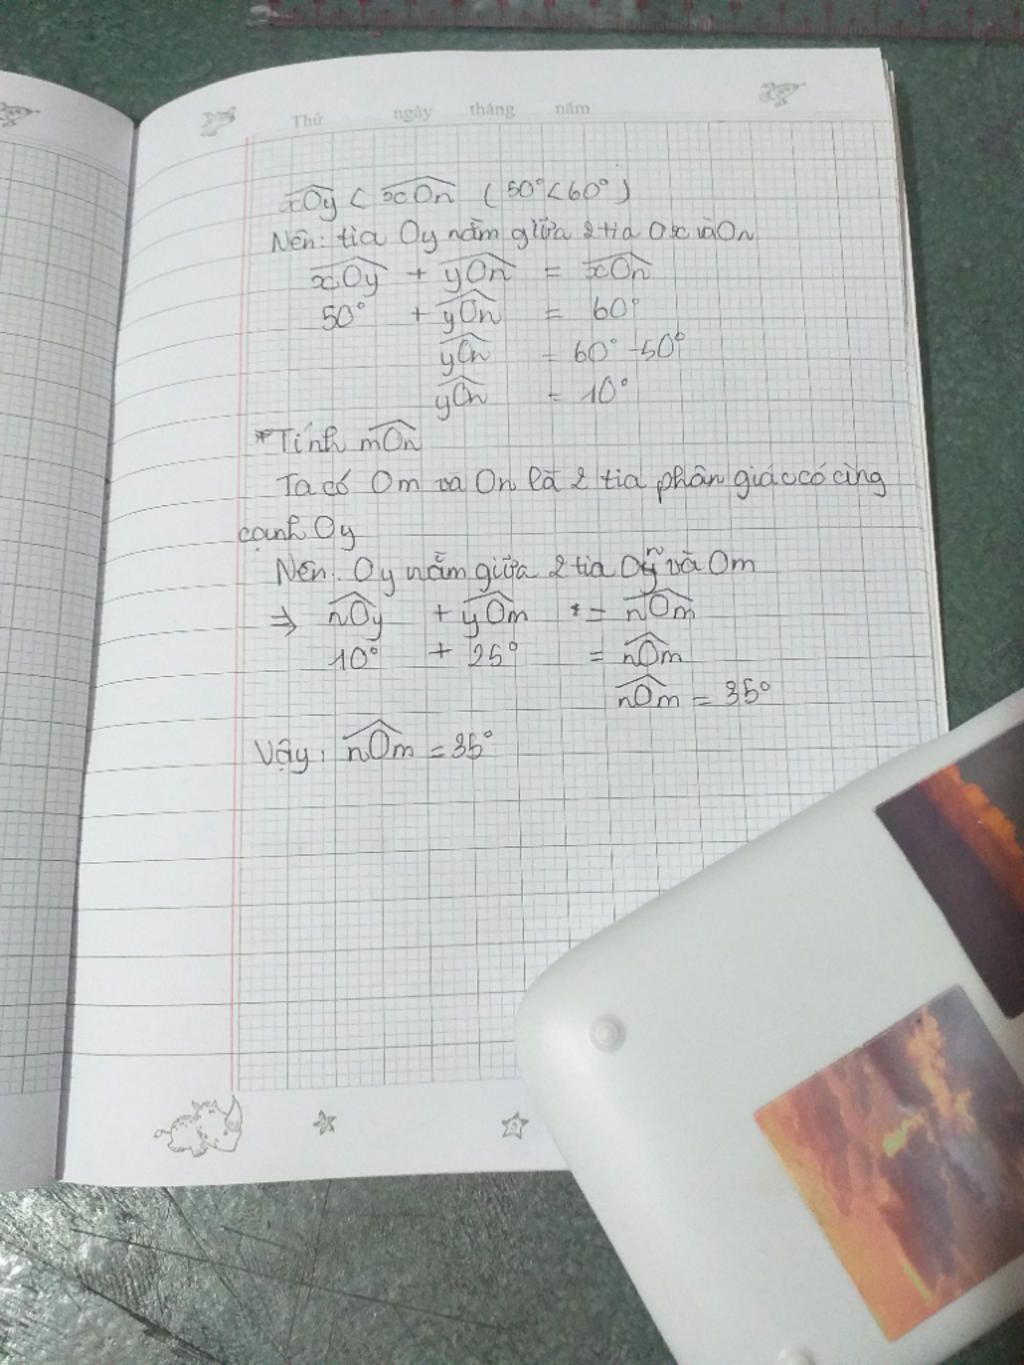 Thứ ngày tháng năm
xOy < xOn (50° < 60°)
Nên: tia Oy nằm giữa 2 tia Ox và On
xOy + yOn = xOn
50° + yOn = 60°
yOn = 60° - 50°
yOn = 10°
*Tính mOn
Ta có Om và On là 2 tia phân giác có cùng
cạnh Oy
Nên: Oy nằm giữa 2 tia On và Om
⇒ nOy + yOm = nOm
10° + 25° = nOm
nOm = 35°
Vậy: nOm = 35°